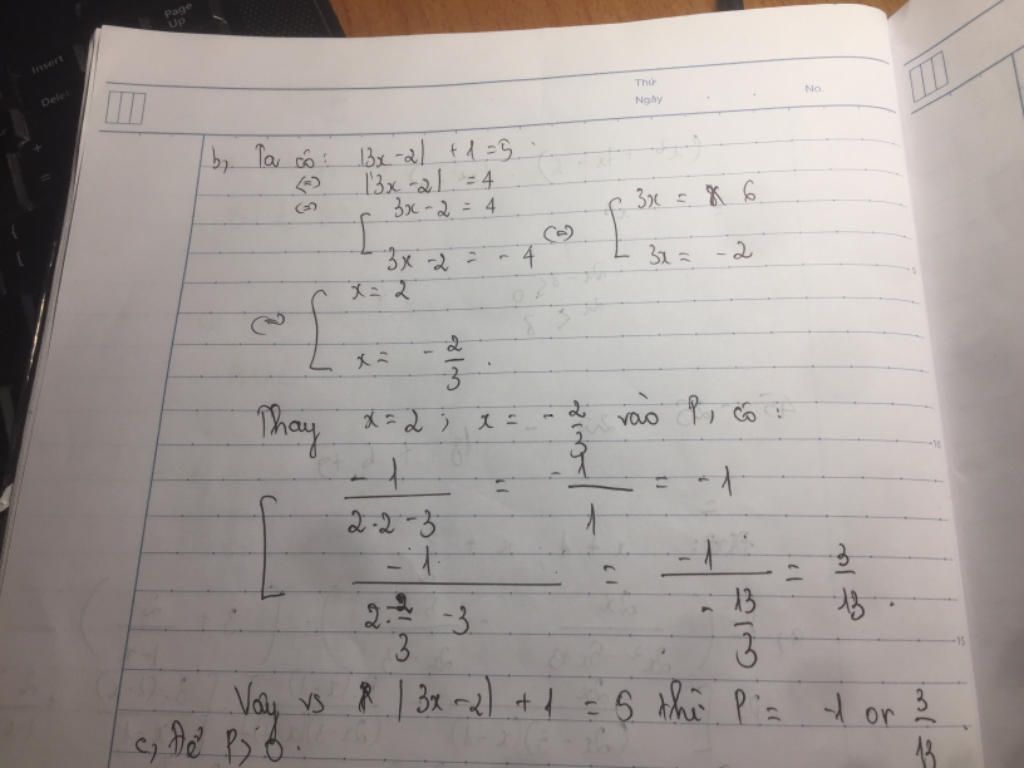 Page
Up
Insert
Thứ
Ngày
No.
b, Ta có: |3x-2| + 1 = 5
<=> |3x-2| = 4
<=> [ 3x-2 = 4 <=> [ 3x = 6
3x-2 = -4 3x = -2
<=> [ x = 2
x = -2/3.
Thay x = 2 ; x = -2/3 vào P, có:
[ -1/(2.2-3) = -1/1 = -1
-1/(2.2/3 -3) = -1/(-13/3) = 3/13.
Vậy vs |3x-2| + 1 = 5 thì P = -1 or 3/13
c, Để P > 0.